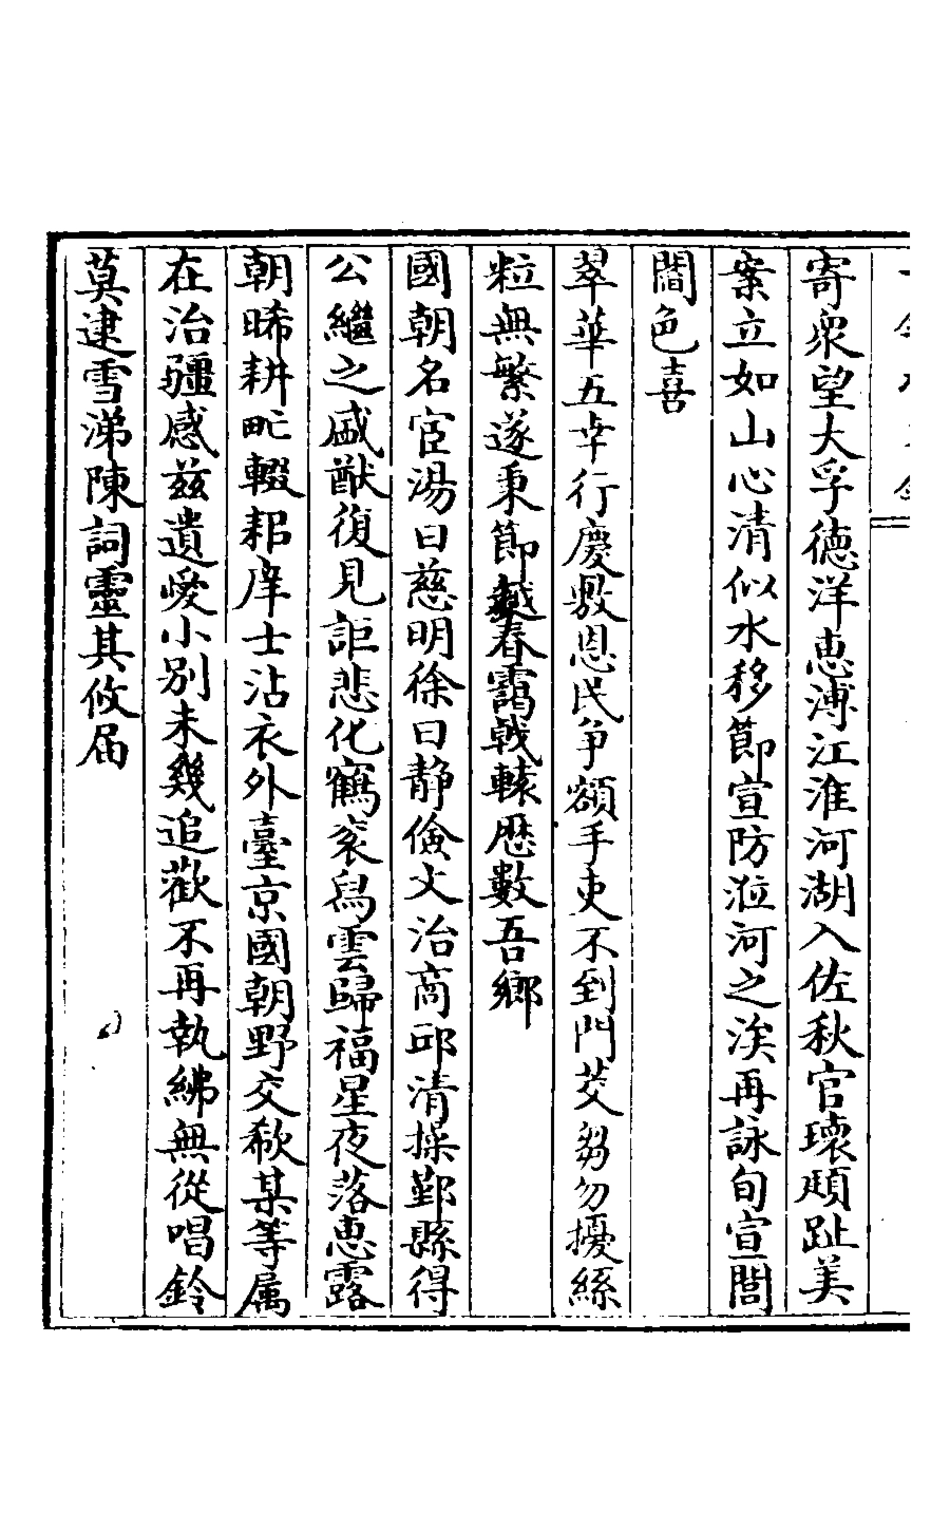 寄衆望大孚德洋惠溥江淮河湖入佐秋官瓌頲趾美
案立如山心清似水移節宣防涖河之涘再詠旬宣閭
閻色喜
翠華五幸行慶敷恩民爭額手吏不到門茭芻勿擾絲
粒無繁遂秉節越春靄戟轅歷數吾鄉
國朝名宦湯曰慈明徐曰靜儉文治商邱清操鄞縣得
公繼之盛猷復見詎悲化鶴袞舄雲歸福星夜落惠露
朝晞耕甿輟耜庠士沾衣外臺京國朝野交欷某等属
在治疆感茲遺愛小別未幾追歡不再執紼無從唱鈴
莫逮雪涕陳詞靈其攸届